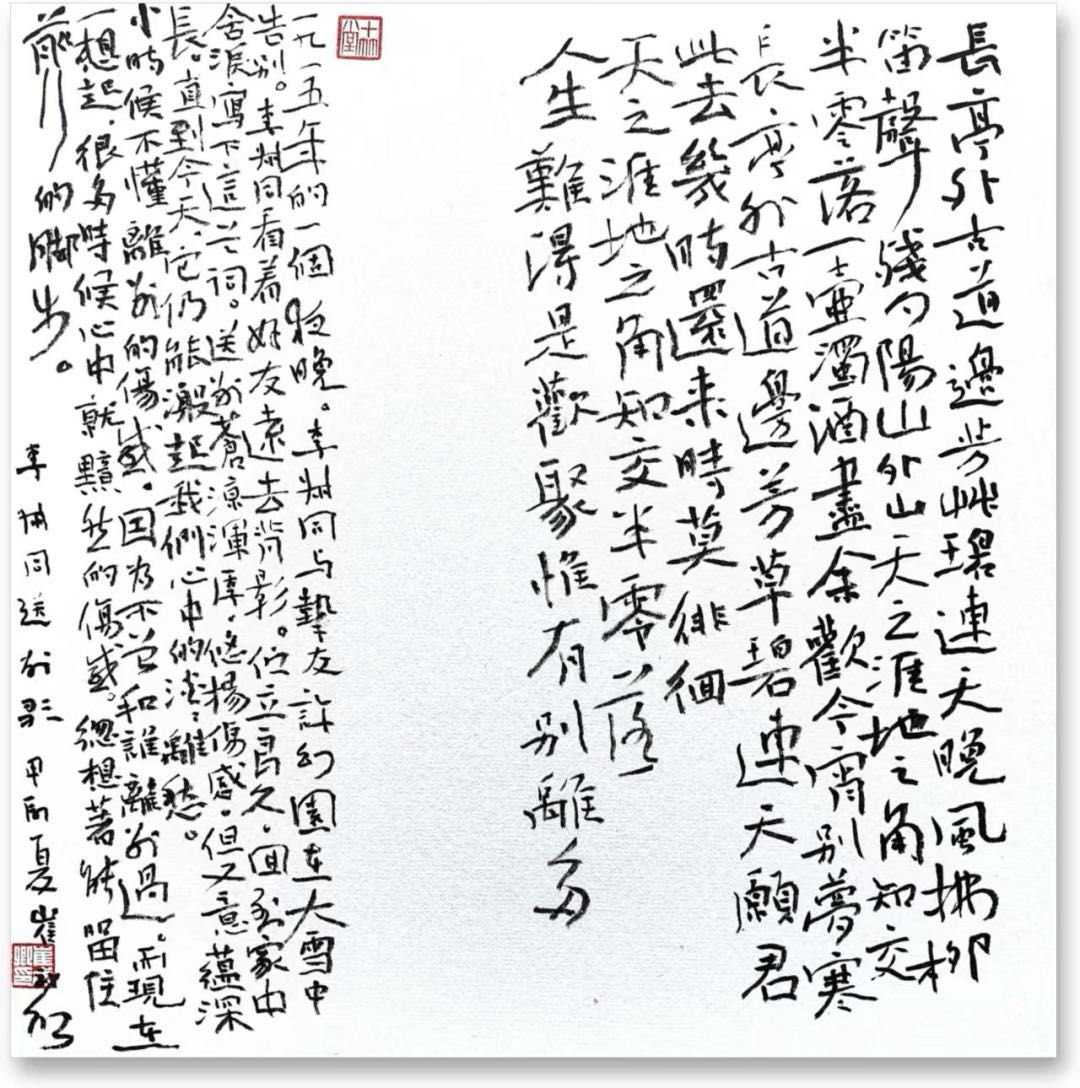 長亭外古道邊芳艸碧連天晚風拂柳
笛聲殘夕陽山外山天之涯地之角知交
半零落一壺濁酒盡余歡今宵别夢寒
長亭外古道邊芳草碧連天願君
此去幾時還来時莫徘徊
天之涯地之角知交半零落
人生難得是歡聚惟有别離多
一九一五年的一個夜晚。李叔同与摯友許幻園在大雪中
告别。李叔同看着好友遠去背影。伫立良久.回到家中
含淚寫下這首詞。送别蒼涼渾厚.悠揚傷感.但又意蘊深
長。直到今天它仍能激起我們心中的淡淡離愁。
小時候不懂離别的傷感。因为不曾和誰離别過。而現在
一想起.很多時候心中就黯然的傷感。總想著能留住
前行的脚步。
李叔同送别歌 甲 夏崔